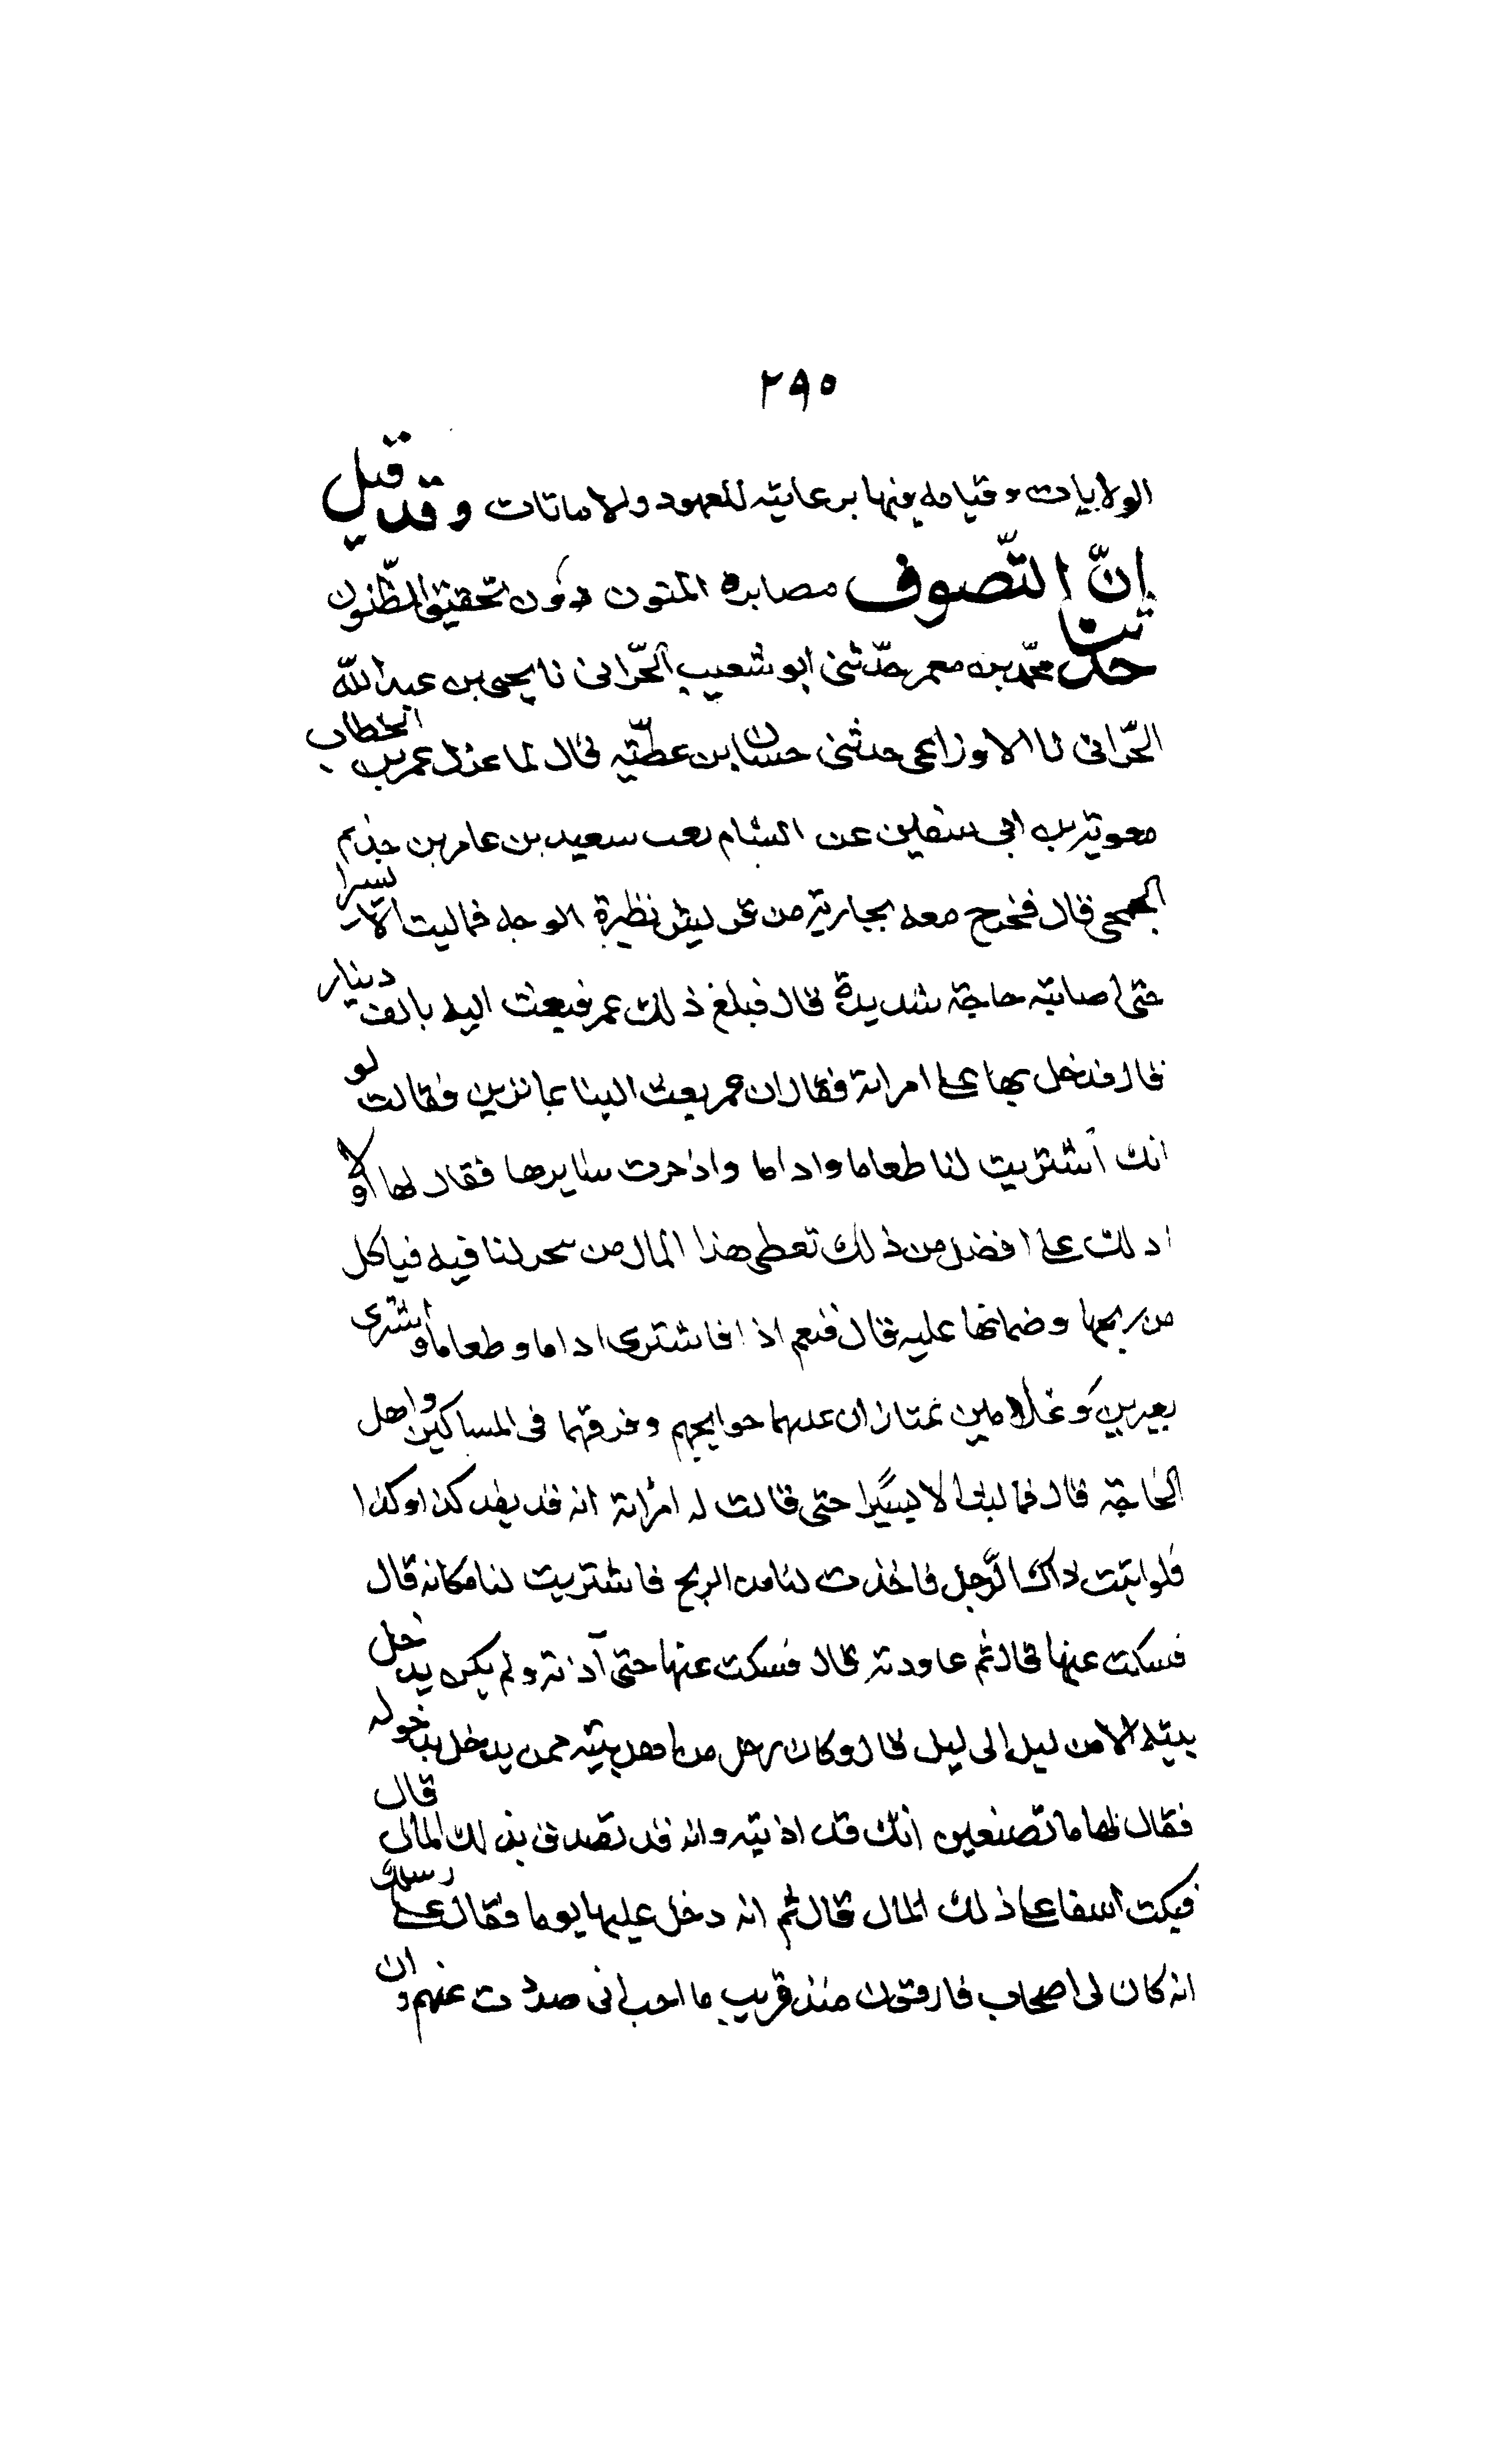 ٢٩٥
الولايات وقيامه فيها برعايته للعهود والامانات وقد قيل
إنّ التّصوف مصابرة المنون دون تحقيق الظّنون
حدثنا محمّد بن معمر حدّثنى ابو شعيب الحّرانى نا يحيى بن عبد الله
الحّرانى نا الاوزاعى حدثنى حسان بن عطيّته قال لما عزل عمر بن الخطاب
معوية بن ابى سفين عن الشام بعث سعيد بن عامر بن حذيم
الجمحى قال فخرج معه بجارية من قريش نظيرة الوجه فما لبث الا يسيرا
حتى اصابته حاجة شديدة قال فبلغ ذلك عمر فبعث اليه بالف دينار
قال فدخل بها على امراته فقال ان عمر بعث الينا بما ترين فقالت لو
انك اشتريت لنا طعاما واداما واذخرت سايرها فقال لها او لا
ادلك على افضل من ذلك تعطى هذا المال من يتحر لنا فيه فياكل
من ربحها وضمانها عليه قال فنعم اذا فاشترى اداما وطعاما واشترى
بعيرين وغلامين يمتاران عليهما حوايجهم وفرقهما فى المساكين واهل
الحاجة قال فما لبث الا يسيرا حتى قالت له امراته انه قد نفد كذا وكذا
فلو اتيت ذاك الرّجل فاخذت لنا من الربح فاشتريت لنا مكانه قال
فسكت عنها قال ثم عاودته قال فسكت عنها حتى آذته ولم يكن يدخل
بيته الا من ليل الى ليل قال وكان رجل من اهل بيته ممن يدخل بدخوله
فقال لها ما تصنعين انك قد اذيتيه وانه قد تصدق بذلك المال قال
فبكت اسفا على ذلك المال قال ثم انه دخل عليها يوما فقال على رسلك
انه كان لى اصحاب فارقونى منذ قريب ما احب انى صددت عنهم وان